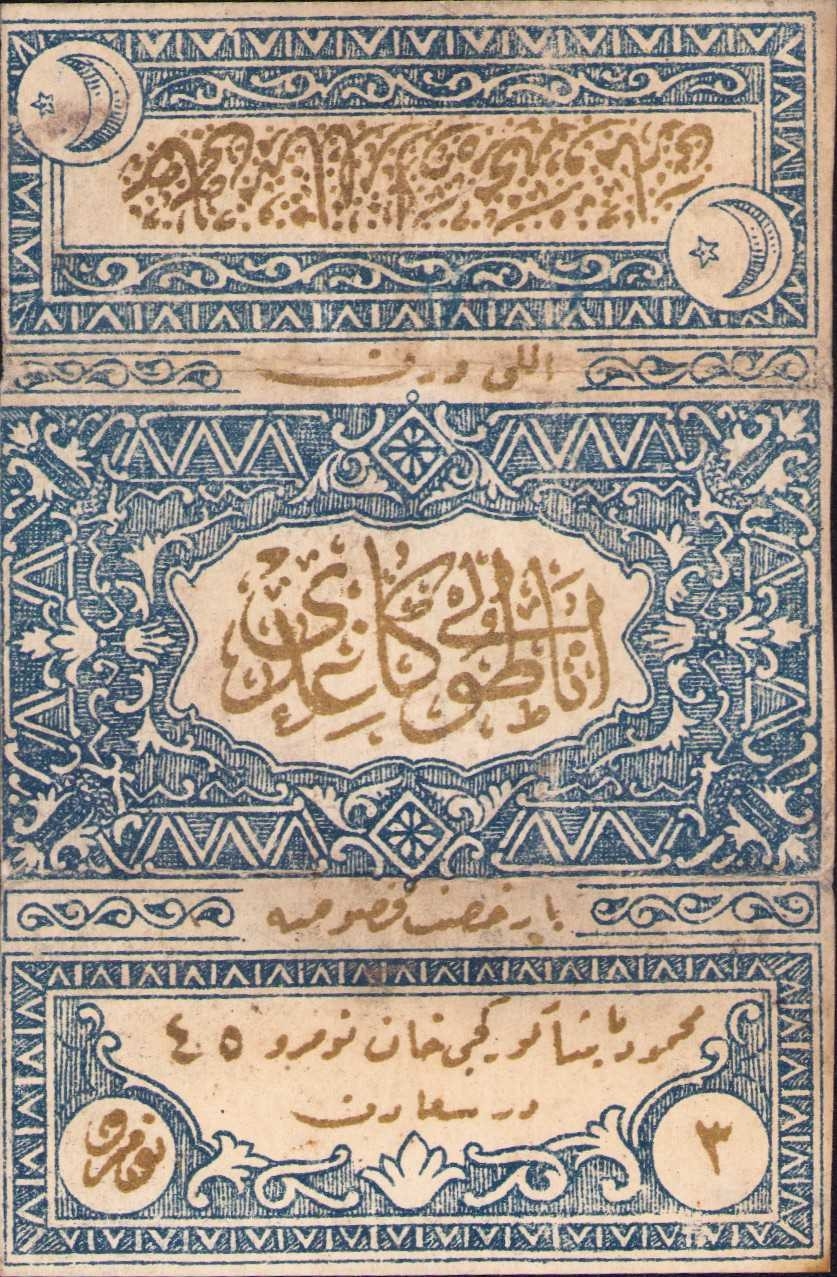 اللی ورق
اناطولی كاغدی
با رخصت خصوصیه
محمود پاشا كوركجی خان نومرو ٤٥
در سعادت
٣ نومرو